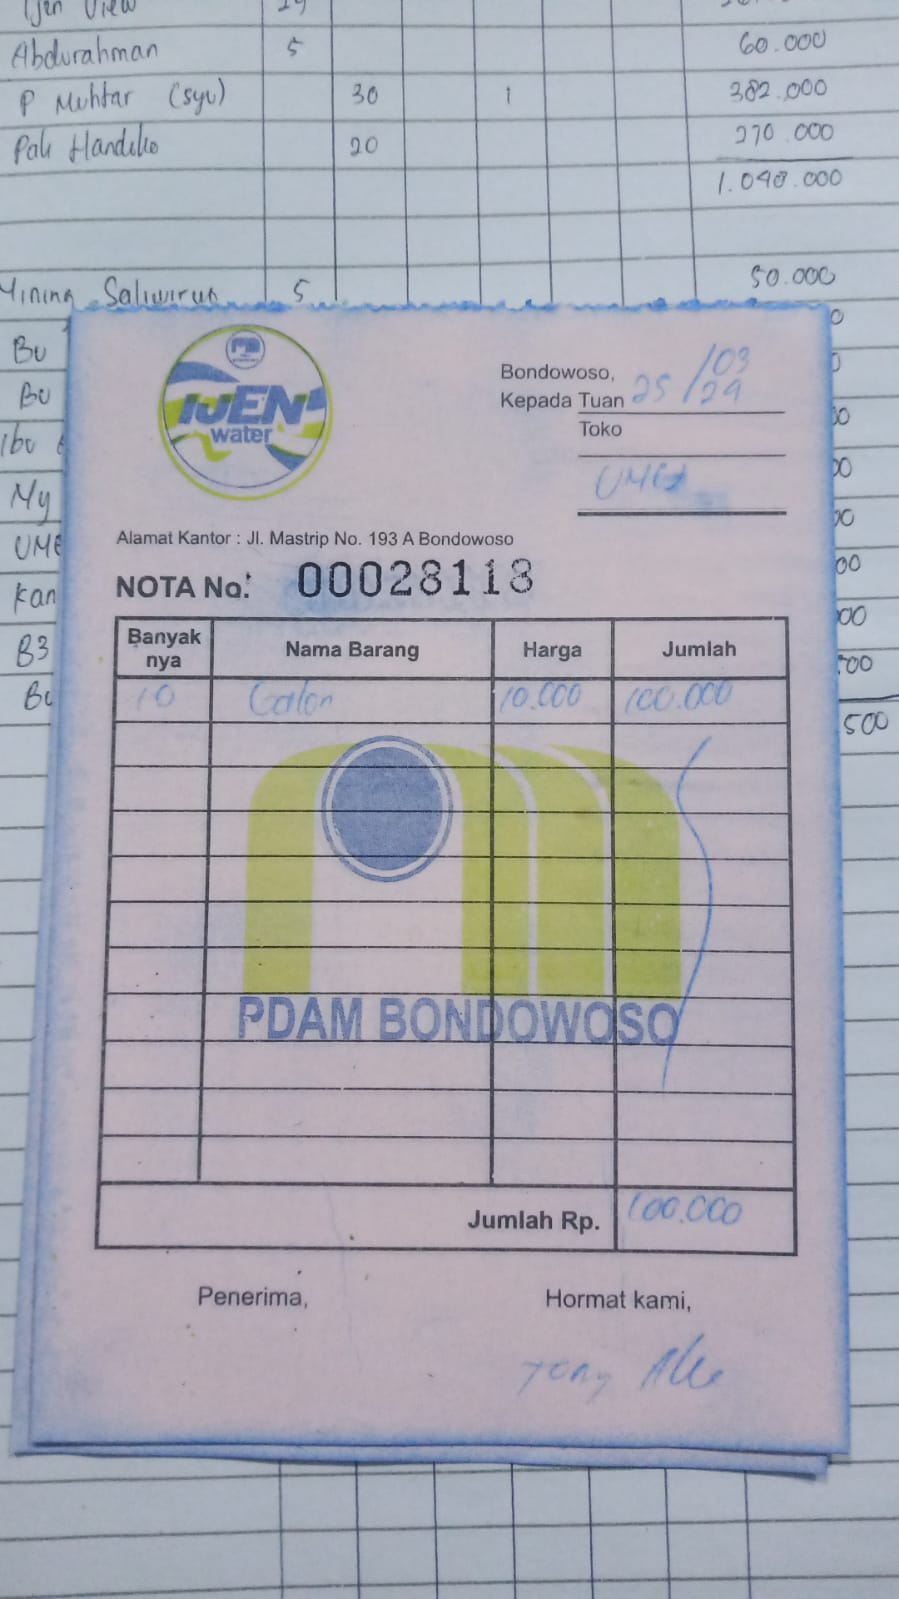 Ijen View
Abdurahman 5 60.000
P Muhtar (syu) 30 1 382.000
Pak Handiko 20 270.000
1.048.000
5 50.000
Bu
Bu
Ibu
My
UME
Kan
B3
Bu
500
IJEN
water
Bondowoso, 25/03/24
Kepada Tuan
Toko
Alamat Kantor : Jl. Mastrip No. 193 A Bondowoso
NOTA No. 00028118
Banyak nya Nama Barang Harga Jumlah
10 Galon 10.000 100.000
PDAM BONDOWOSO
Jumlah Rp. 100.000
Penerima, Hormat kami,
Tony